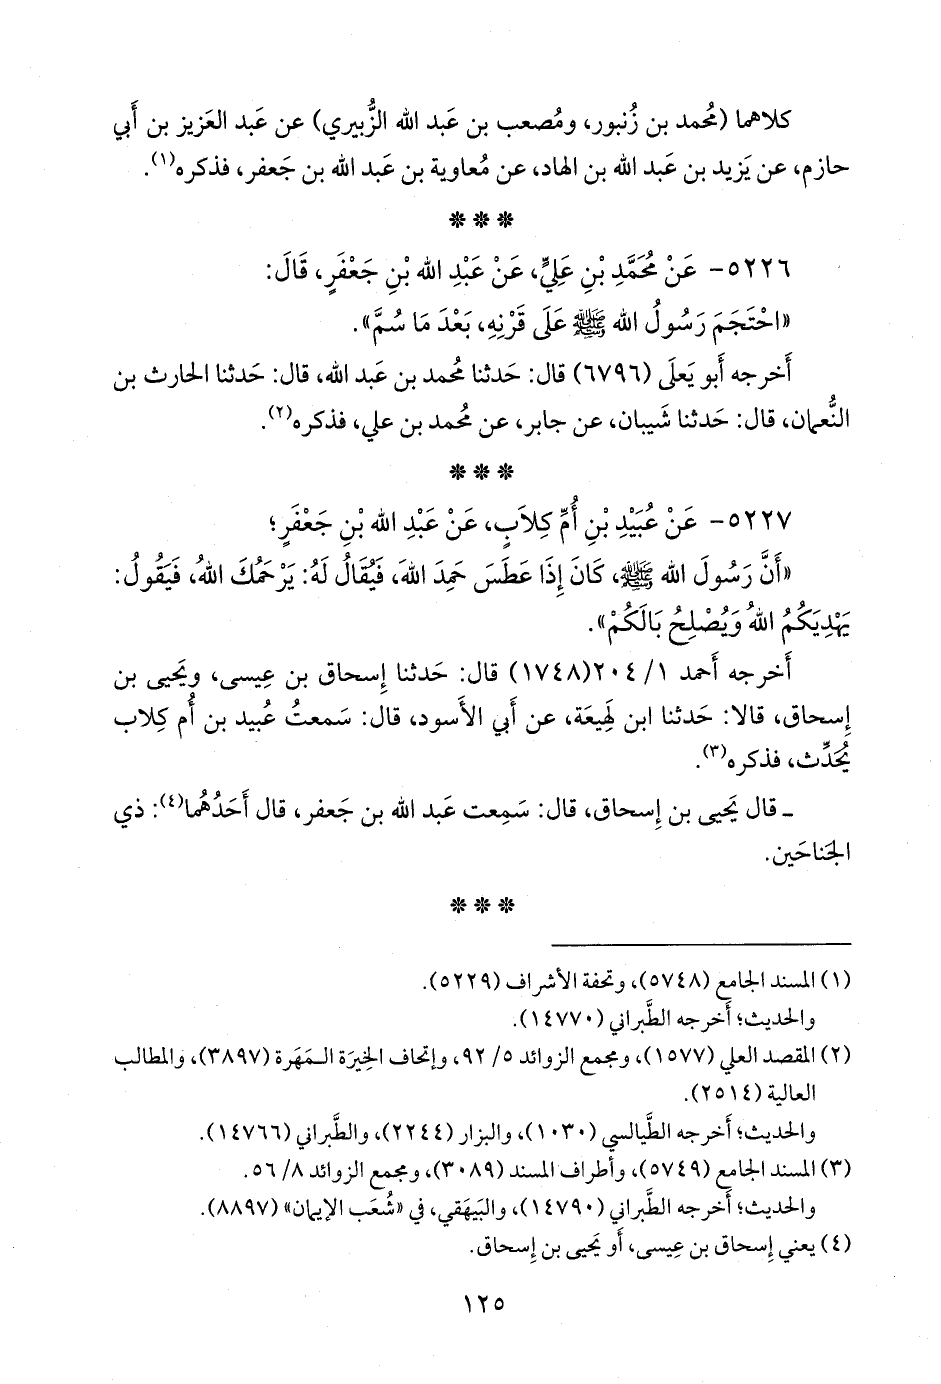 كلاهما (مُحمد بن زُنبور، ومُصعب بن عَبد الله الزُّبيري) عن عَبد العَزيز بن أَبي
حازم، عن يَزيد بن عَبد الله بن الهاد، عن مُعاوية بن عَبد الله بن جَعفر، فذكره(١).
* * *
٥٢٢٦- عَنْ مُحَمَّدِ بْنِ عَلِيٍّ، عَنْ عَبْدِ اللهِ بْنِ جَعْفَرٍ، قَالَ:
«احْتَجَمَ رَسُولُ اللهِ ﷺ عَلَى قَرْنِهِ، بَعْدَ مَا سُمَّ».
أَخرجه أَبو يَعلَى (٦٧٩٦) قال: حَدثنا مُحمد بن عَبد الله، قال: حَدثنا الحارث بن
النُّعمان، قال: حَدثنا شَيبان، عن جابر، عن مُحمد بن علي، فذكره(٢).
* * *
٥٢٢٧- عَنْ عُبَيْدِ بْنِ أُمِّ كِلاَبٍ، عَنْ عَبْدِ اللهِ بْنِ جَعْفَرٍ؛
«أَنَّ رَسُولَ اللهِ ﷺ، كَانَ إِذَا عَطَسَ حَمِدَ اللهَ، فَيُقَالُ لَهُ: يَرْحَمُكَ اللهُ، فَيَقُولُ:
يَهْدِيكُمُ اللهُ وَيُصْلِحُ بَالَكُمْ».
أَخرجه أَحمد ١/ ٢٠٤(١٧٤٨) قال: حَدثنا إِسحاق بن عِيسى، ويَحيى بن
إِسحاق، قالا: حَدثنا ابن لَهِيعَة، عن أَبي الأَسود، قال: سَمعتُ عُبيد بن أُم كِلاب
يُحَدِّث، فذكره(٣).
ـ قال يَحيى بن إِسحاق، قال: سَمِعت عَبد الله بن جَعفر، قال أَحَدُهُما(٤): ذي
الجَناحَين.
* * *
(١) المسند الجامع (٥٧٤٨)، وتحفة الأشراف (٥٢٢٩).
والحديث؛ أَخرجه الطَّبراني (١٤٧٧٠).
(٢) المقصد العلي (١٥٧٧)، ومجمع الزوائد ٥/ ٩٢، وإتحاف الخِيرَة الـمَهَرة (٣٨٩٧)، والمطالب
العالية (٢٥١٤).
والحديث؛ أَخرجه الطَّيالسي (١٠٣٠)، والبزار (٢٢٤٤)، والطَّبراني (١٤٧٦٦).
(٣) المسند الجامع (٥٧٤٩)، وأطراف المسند (٣٠٨٩)، ومجمع الزوائد ٨/ ٥٦.
والحديث؛ أَخرجه الطَّبراني (١٤٧٩٠)، والبَيهَقي، في «شُعَب الإيمان» (٨٨٩٧).
(٤) يعني إِسحاق بن عِيسى، أَو يَحيى بن إِسحاق.
١٢٥